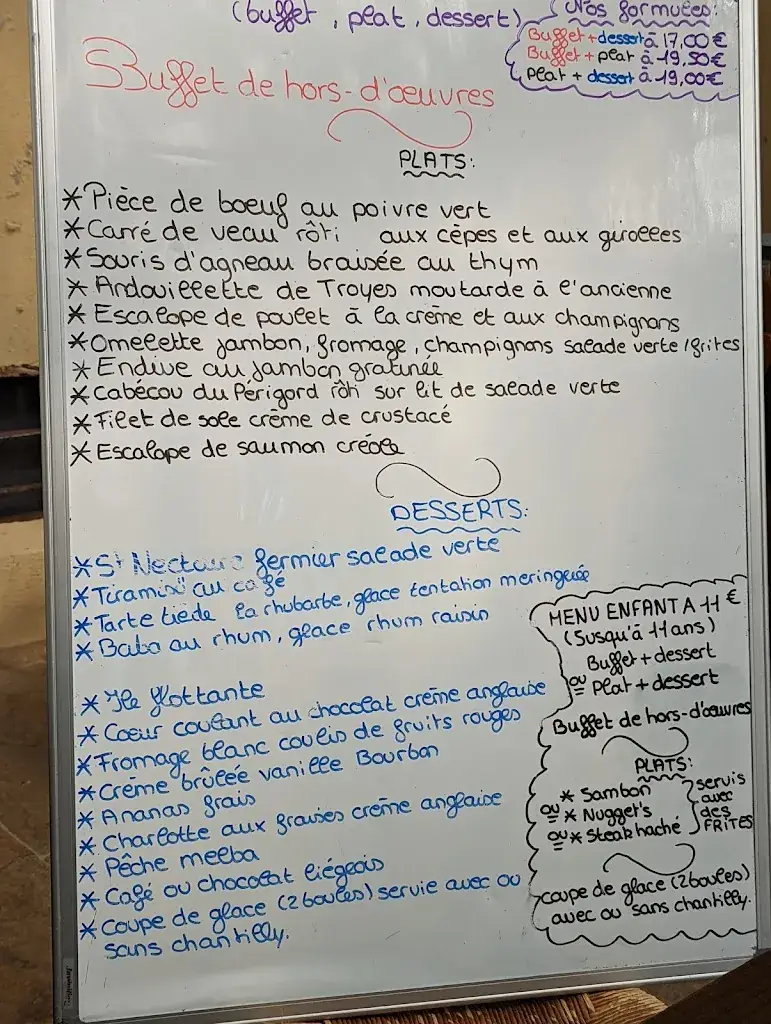 (buffet, plat, dessert)
Nos formules:
Buffet + dessert à 17,00€
Buffet + plat à 19,50€
plat + dessert à 19,00€
Buffet de hors-d'œuvres
PLATS:
* Pièce de boeuf au poivre vert
* Carré de veau rôti aux cèpes et aux girolles
* Souris d'agneau braisée au thym
* Andouillette de Troyes moutarde à l'ancienne
* Escalope de poulet à la crème et aux champignons
* Omelette jambon, fromage, champignons salade verte / frites
* Endive au jambon gratinée
* Cabécou du Périgord rôti sur lit de salade verte
* Filet de sole crème de crustacé
* Escalope de saumon créole
DESSERTS:
* St Nectaire fermier salade verte
* Tiramisu au café
* Tarte tiède la rhubarbe, glace tentation meringuée
* Baba au rhum, glace rhum raisin
* Ile flottante
* Coeur coulant au chocolat crème anglaise
* Fromage blanc coulis de fruits rouges
* Crème brûlée vanille Bourbon
* Ananas frais
* Charlotte aux fraises crème anglaise
* Pêche melba
* Café ou chocolat liégeois
* Coupe de glace (2 boules) servie avec ou
sans chantilly.
MENU ENFANT A 11€
(Jusqu'à 11 ans)
Buffet + dessert
ou Plat + dessert
Buffet de hors-d'œuvres
PLATS:
* Jambon
ou * Nugget's
ou * Steak haché
servis
avec
des
FRITES
coupe de glace (2 boules)
avec ou sans chantilly.